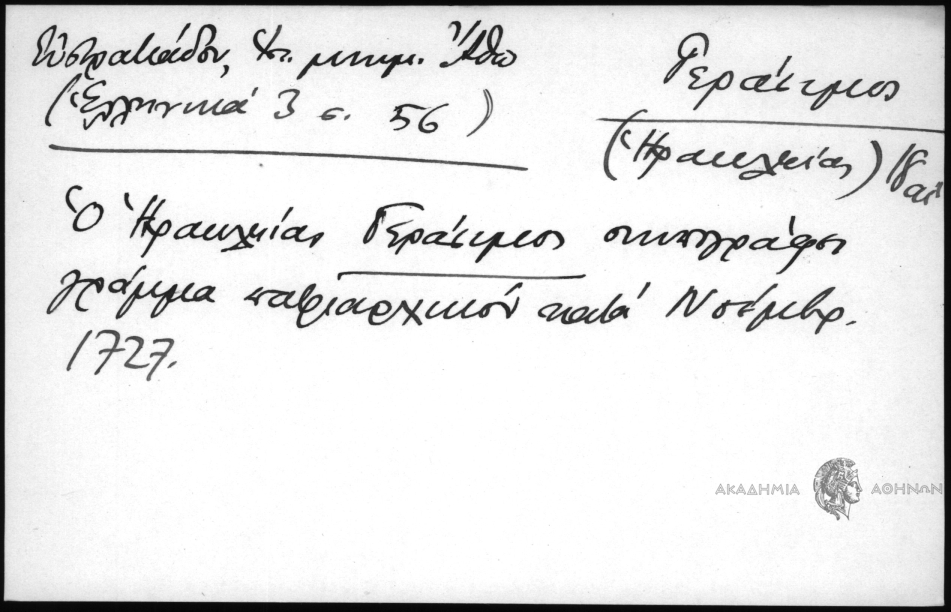 Εὐστρατιάδου, Ἱστ. μνημ. Ἄθω
(Ἑλληνικά 3 σ. 56)
Γεράσιμος
(Ἡρακλείας) 18 αἰ
Ὁ Ἡρακλείας Γεράσιμος συνυπογράφει
γράμμα πατριαρχικόν κατά Νοέμβρ.
1727.
ΑΚΑΔΗΜΙΑ ΑΘΗΝΩΝ